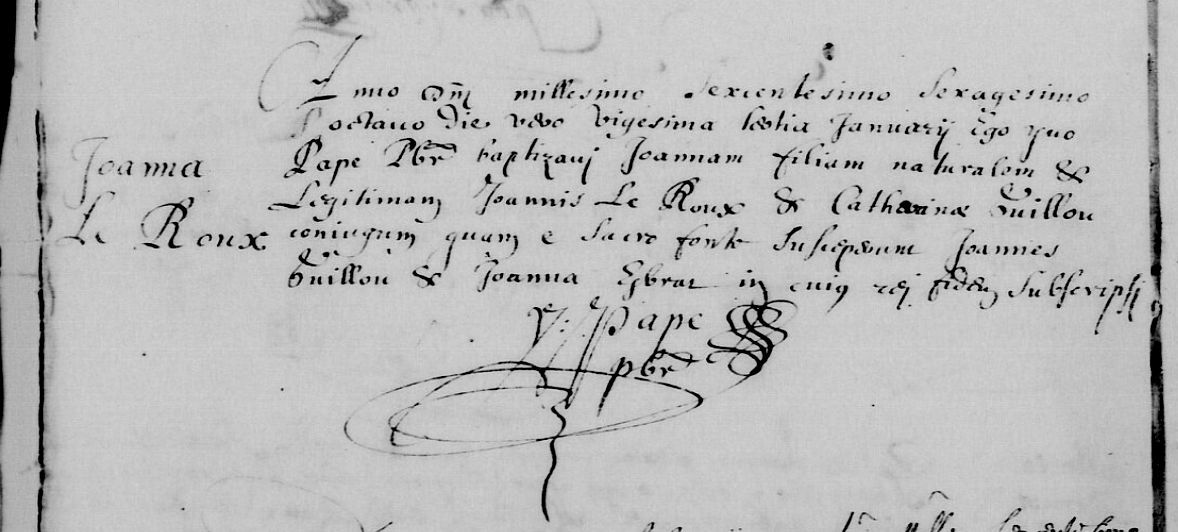 Joanna
Le Roux
Anno Dñi millesimo sexcentesimo sexagesimo
octavo die vero vigesima tertia Januarij Ego yvo
Pape Pbr baptizavj Joannam filiam naturalem &
Legitimam Joannis Le Roux & Catharinæ Guillou
coniugum quam e sacro fonte susceperunt Joannes
Guillou & Joanna in cuiq rej fidem subscripsj
Y: Pape
pbr